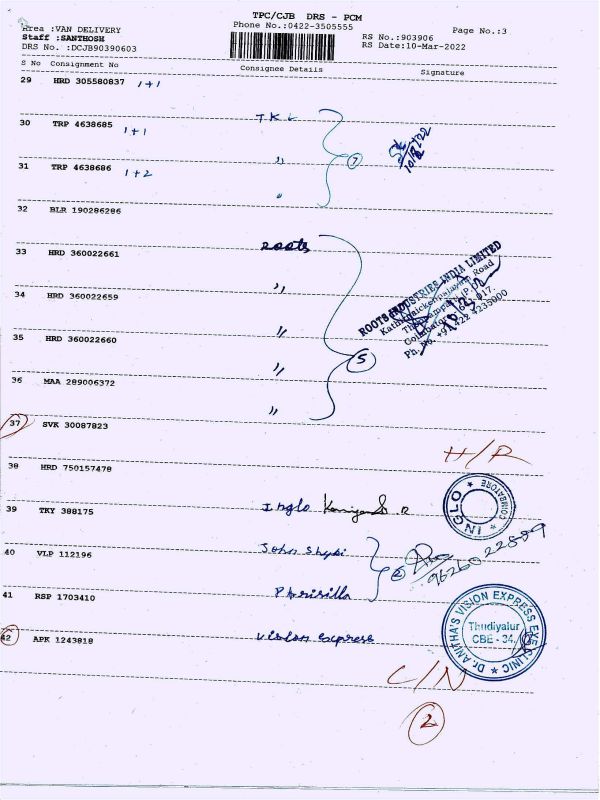 TPC/CJB DRS - PCM
Area :VAN DELIVERY
Phone No.:0422-3505555
Staff :SANTHOSH
RS No.:903906
Page No.:3
DRS No. :DCJB90390603
RS Date:10-Mar-2022
S No Consignment No Consignee Details Signature
29 HRD 305580837 1+1
30 TRP 4638685 1+1 TKL
31 TRP 4638686 1+2 "
7
10/3/22
"
32 BLR 190286286
33 HRD 360022661 Roots
34 HRD 360022659 "
35 HRD 360022660 "
36 MAA 289006372 "
"
5
ROOTS INDUSTRIES INDIA LIMITED
Kathirnaickenpalayam Road
Coimbatore - 641 017.
Ph. No. +91 422 4235000
37 SVK 30087823
H/R
38 HRD 750157478
39 TKY 388175 Inglo
INGLO * COIMBATORE *
40 VLP 112196 John
2
9626022889
41 RSP 1703410 Phrisilla
42 APK 1243818 Vision Express
Dr. ANITHA'S VISION EXPRESS EYE CLINIC *
Thudiyalur
CBE - 34.
C/N
2